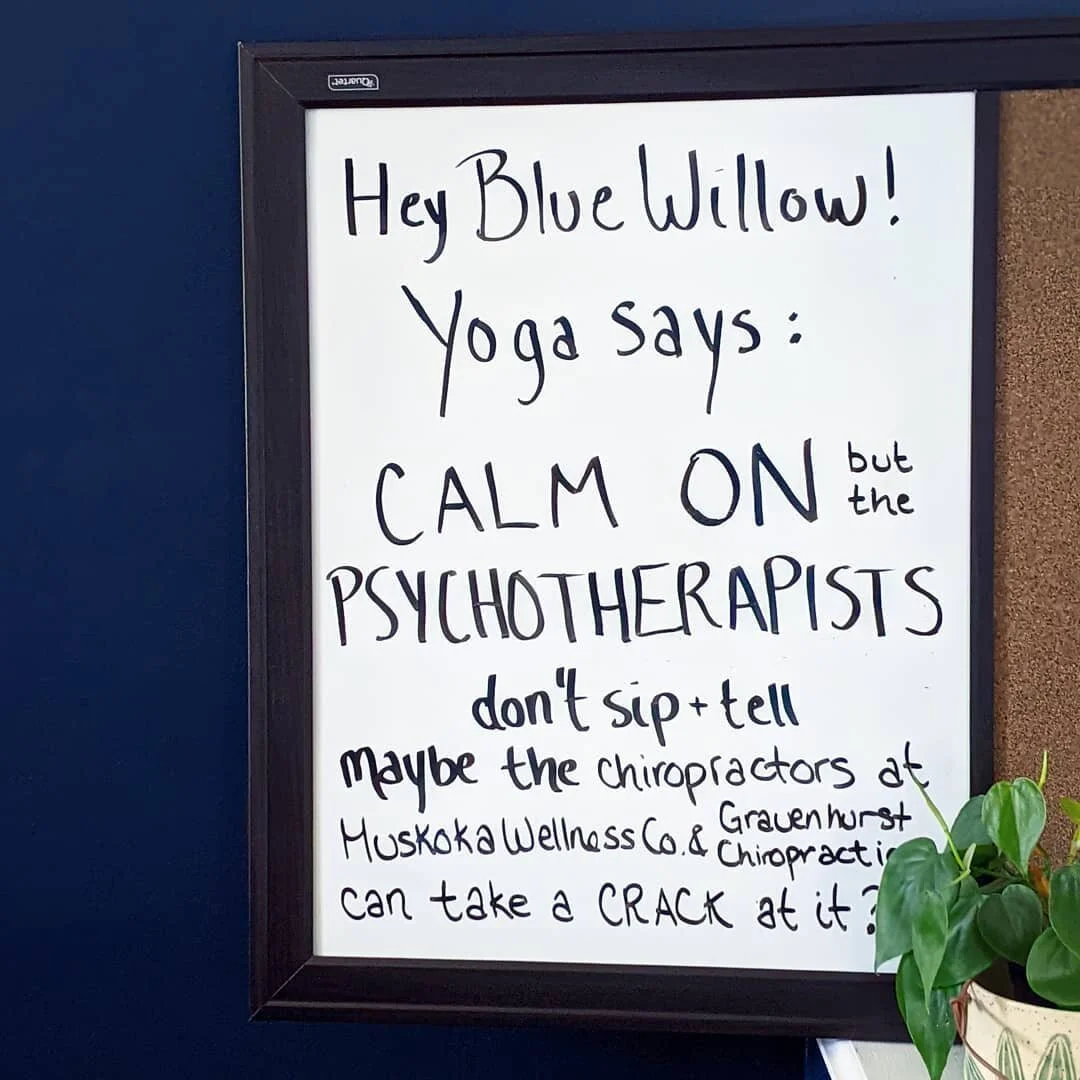 Quartet
Hey Blue Willow!
Yoga says:
CALM ON but the
PSYCHOTHERAPISTS
don't sip + tell
maybe the chiropractors at
Muskoka Wellness Co. & Gravenhurst Chiropractic
can take a CRACK at it?